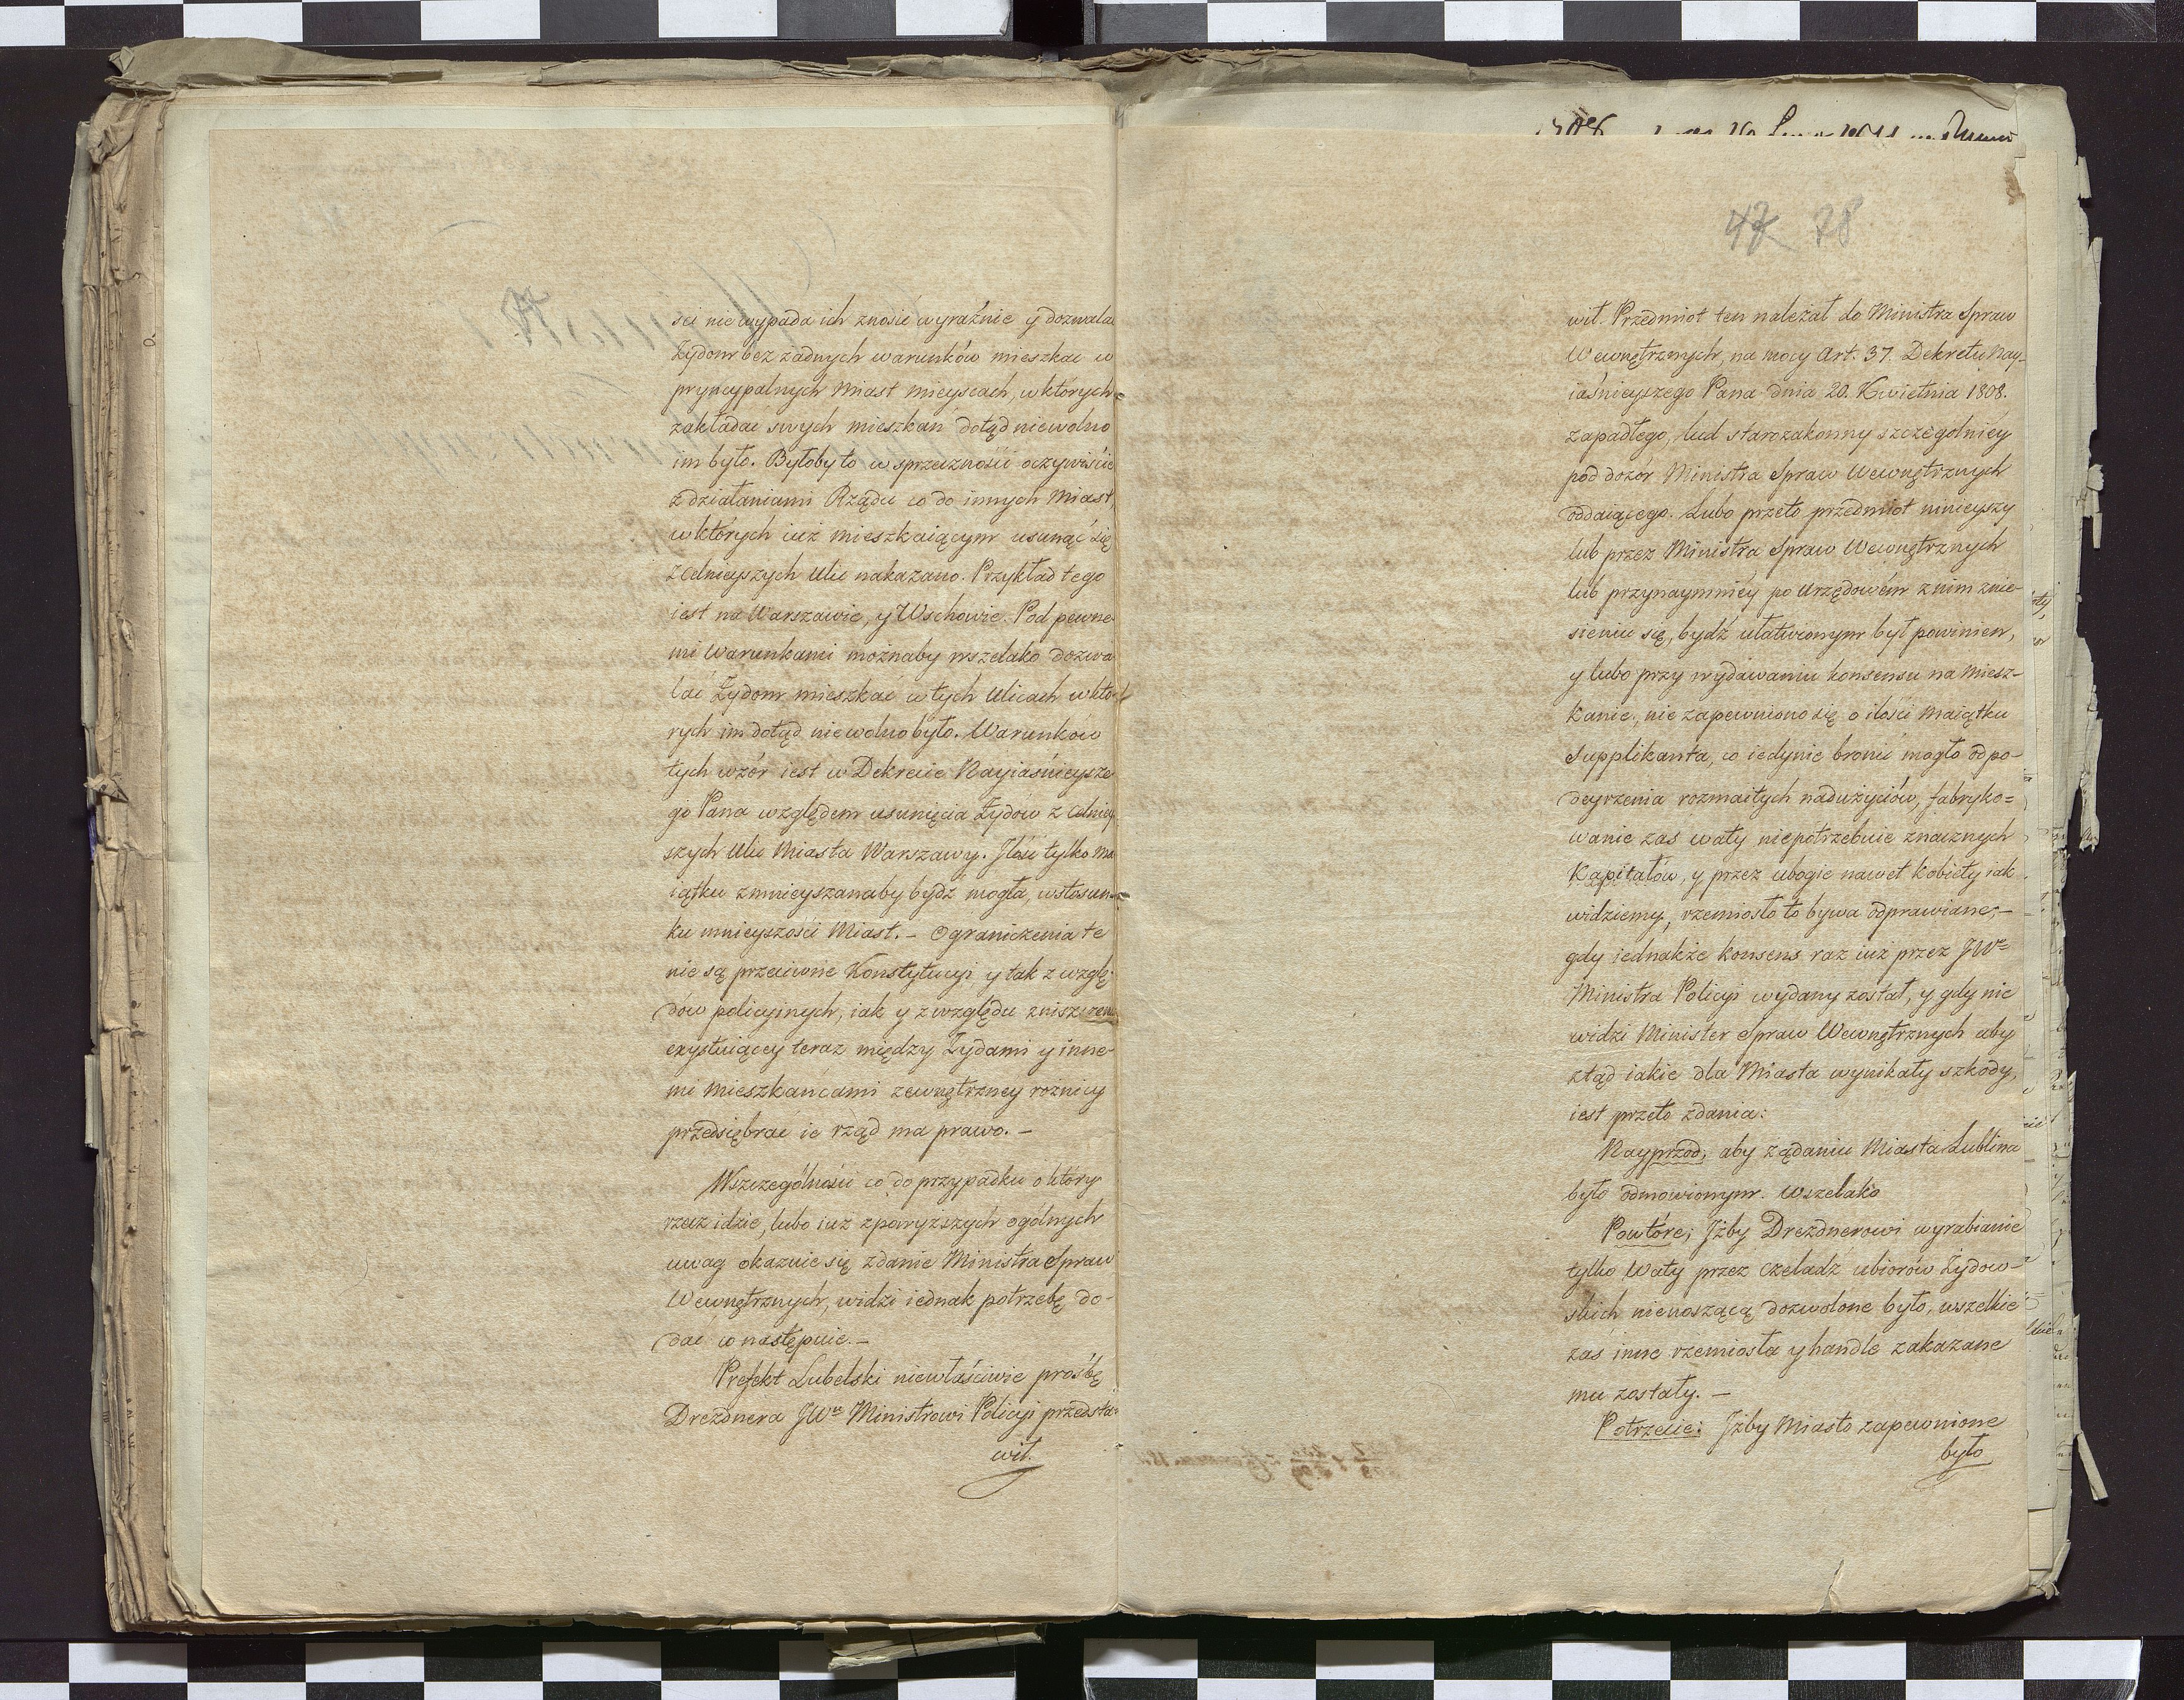 ści nie wypada ich znosić wyraźnie y dozwalać
Żydom bez żadnych warunków mieszkać w
pryncypalnych Miast mieyscach, w których
zakładać swych mieszkań dotąd niewolno
im było. Byłoby to w sprzeczności oczywiście
z działaniami Rządu co do innych Miast,
w których iuż mieszkaiącym usunąć się
z celnieyszych Ulic nakazano. Przykład tego
iest na Warszawie, y Wschowie. Pod pewne-
mi warunkami możnaby wszelako dozwa-
lać Żydom mieszkać w tych Ulicach w któ-
rych im dotąd niewolno było. Warunków
tych wzór iest w Dekrecie Nayiaśnieysze-
go Pana względem usunięcia Żydów z celniey-
szych Ulic Miasta Warszawy. Ilość tylko ma-
iątku zmnieyszanaby bydź mogła, w stosun-
ku mnieyszości Miast. – Ograniczenia te
nie są przeciwne Konstytucyi y tak z wzglę-
dów policyinych, iak y z względu zniszczenia
exystuiącey teraz między Żydami y inne-
mi Mieszkańcami zewnętrzney rożnicy
przedsiębrać ie rząd ma prawo. –
W szczególności co do przypadku o który
rzecz idzie, lubo iuż z powyższych ogólnych
uwag okazuie się zdanie Ministra Spraw
Wewnętrznych, widzi iednak potrzebę do-
dać co następuie. –
Prefekt Lubelski niewłaściwie prośbę
Drezdnera JWu Ministrowi Policyi przedsta-
wił.
47 78
wił. Przedmiot ten należał do Ministra Spraw
Wewnętrznych, na mocy Art. 37. Dekretu Nay-
iaśnieyszego Pana dnia 20. Kwietnia 1808.
zapadłego, lud starozakonny szczególniéy
pod dozór Ministra Spraw Wewnętrznych
oddaiącego. Lubo przeto przedmiot ninieyszy
lub przez Ministra Spraw Wewnętrznych
lub przynaymniéy po Urzędowém z nim znie-
sieniu się, bydź ułatwionym był powinien,
y lubo przy wydawaniu konsensu na miesz-
kanie, nie zapewniono się o ilości Maiątku
Supplikanta, co iedynie bronić mogło od po-
deyrzenia rozmaitych nadużyciów, fabryko-
wanie zaś waty niepotrzebuie znacznych
Kapitałów, y przez ubogie nawet kobiety iak
widziemy, rzemiosło to bywa odprawiane; –
gdy iednakże konsens raz iuż przez JWo
Ministra Policyi wydany został, y gdy nie
widzi Minister Spraw Wewnętrznych aby
ztąd iakie dla Miasta wynikały szkody,
iest przeto zdania:
Nayprzod, aby żądaniu Miasta Lublina
było odmowionym. wszelako
Powtóre, Iżby Drezdnerowi wyrabianie
tylko Waty przez czeladź ubiorów Żydow-
skich nienoszącą dozwolone było, wszelkie
zaś inne rzemiosła y handle zakazane
mu zostały. –
Potrzecie: Iżby Miasto zapewnione
było